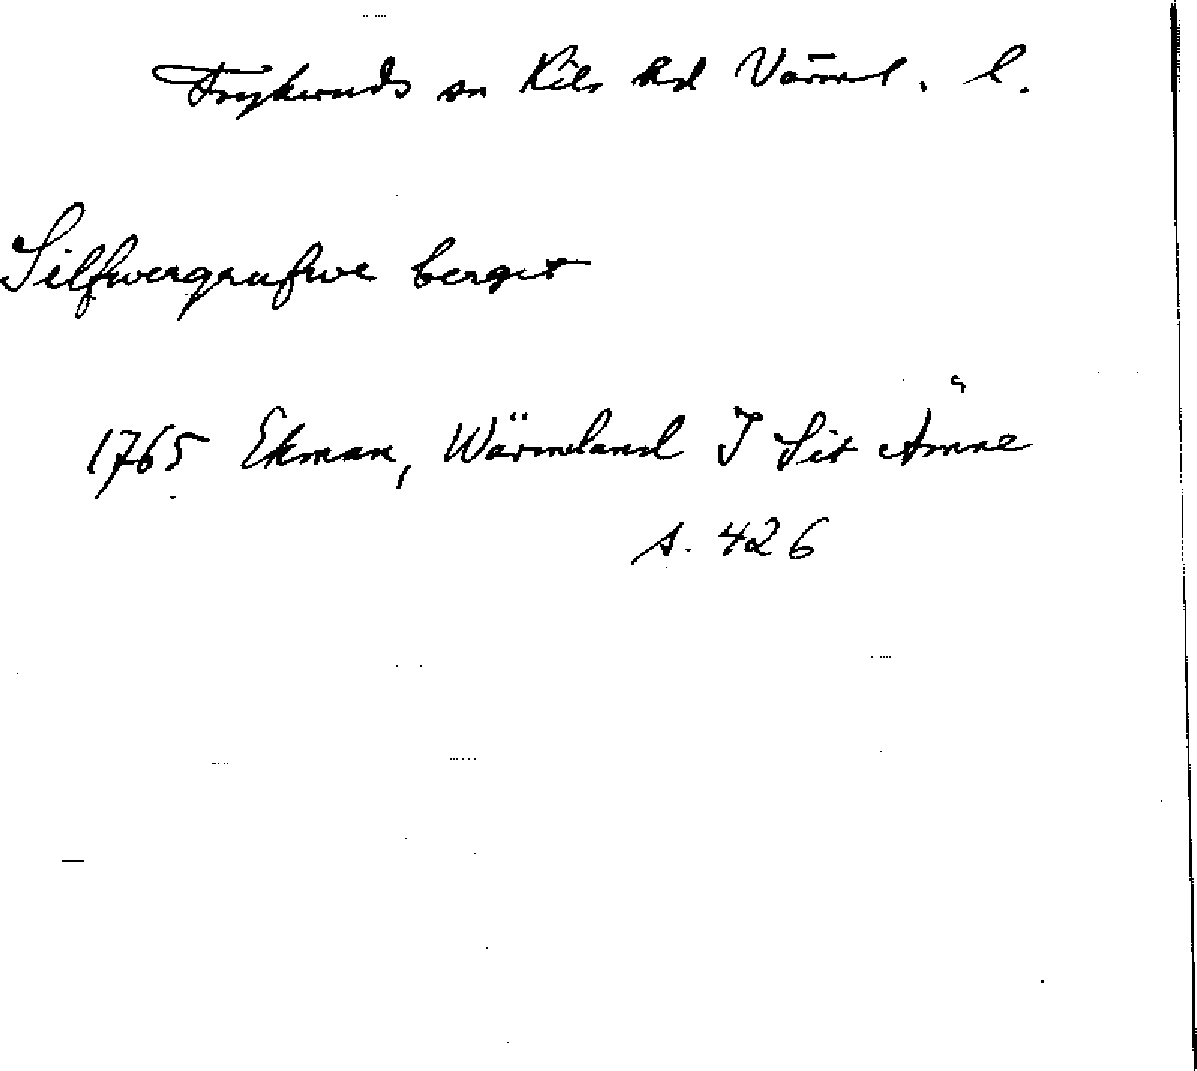 Frykeruds sn Kils hd Värml. l.
Silfwergrufwe berget
1765 Ekman, Wärmeland I Sit Ämne
s. 426